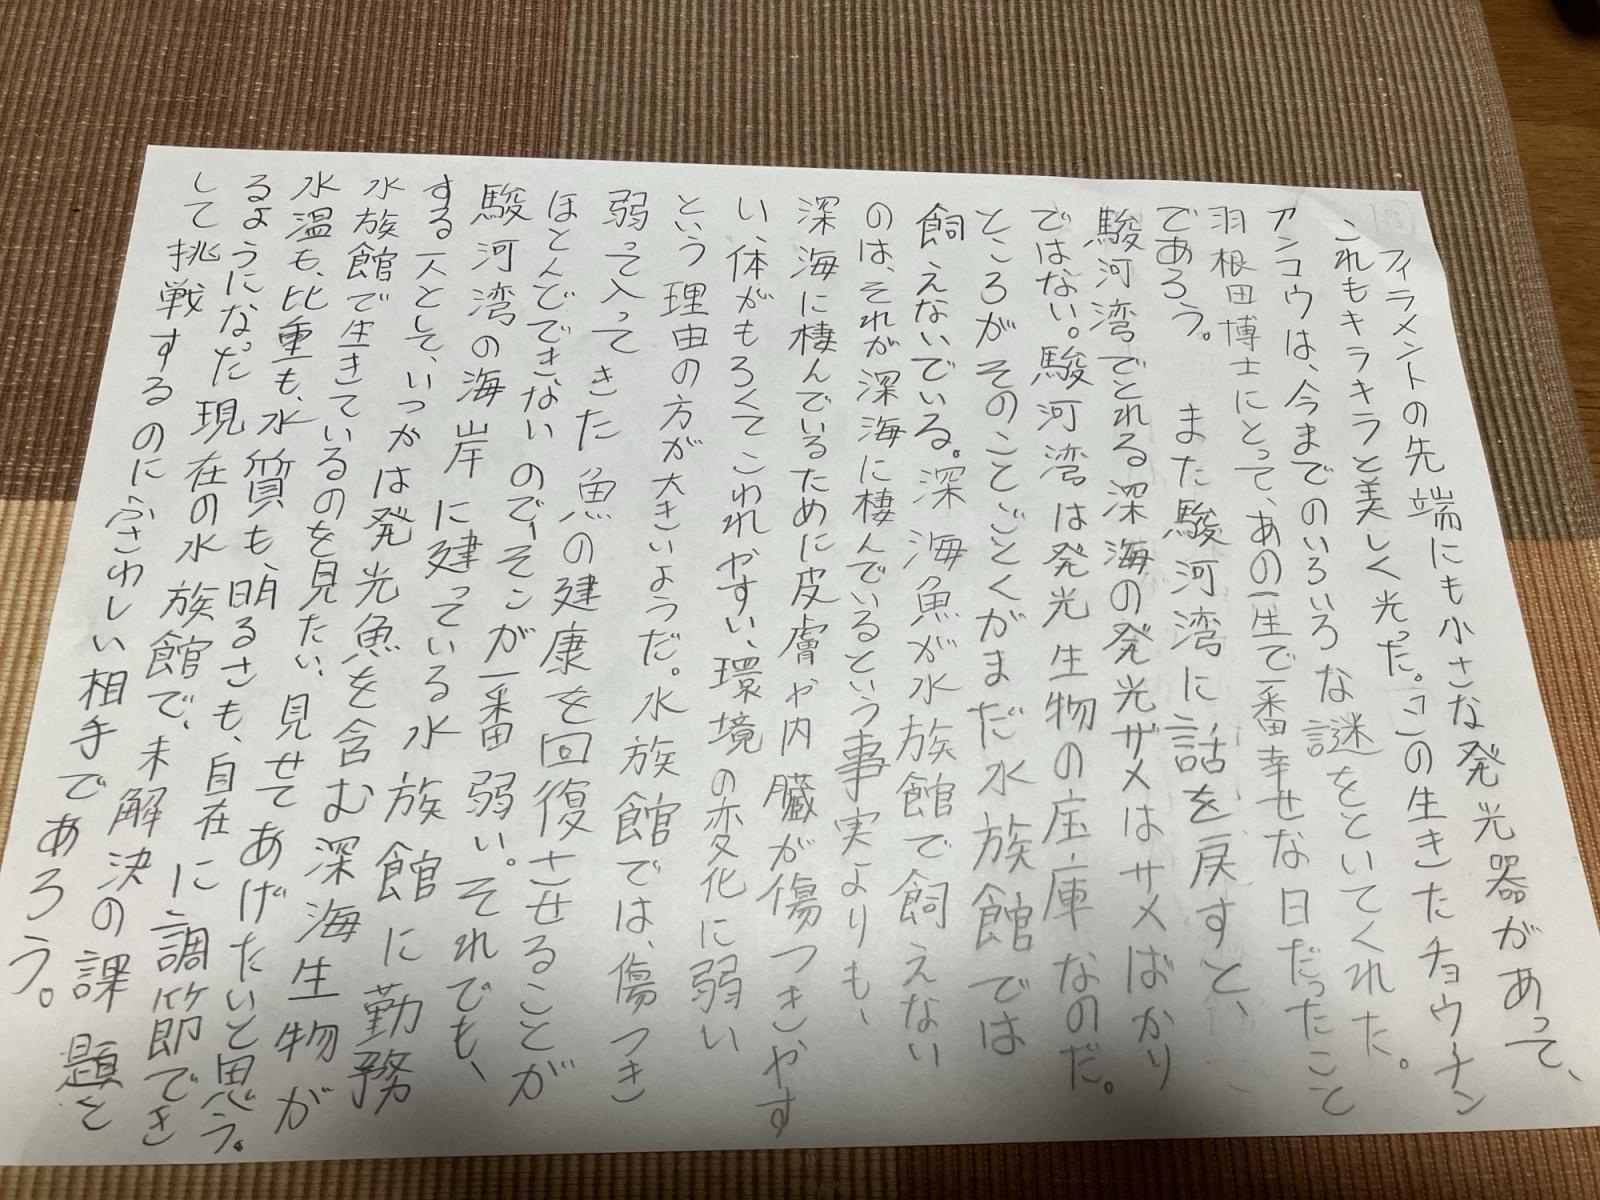 フィラメントの先端にも小さな発光器があって、
これもキラキラと美しく光った。この生きたチョウチン
アンコウは、今までのいろいろな謎をといてくれた。
羽根田博士にとって、あの一生で一番幸せな日だったこと
であろう。 また駿河湾に話を戻すと、
駿河湾でとれる深海の発光ザメはサメばかり
ではない。駿河湾は発光生物の宝庫なのだ。
ところがそのことごとくがまだ水族館では
飼えないでいる。深海魚が水族館で飼えない
のは、それが深海に棲んでいるという事実よりも、
深海に棲んでいるために皮膚や内臓が傷つきやす
い、体がもろくてこわれやすい、環境の変化に弱い
という理由の方が大きいようだ。水族館では、傷つき
弱って入ってきた魚の健康を回復させることが
ほとんどできないので、そこが一番弱い。それでも、
駿河湾の海岸に建っている水族館に勤務
する一人として、いつかは発光魚を含む深海生物が
水族館で生きているのを見たい、見せてあげたいと思う。
水温も、比重も、水質も、明るさも、自在に調節でき
るようになった現在の水族館で、未解決の課題と
して挑戦するのにふさわしい相手であろう。